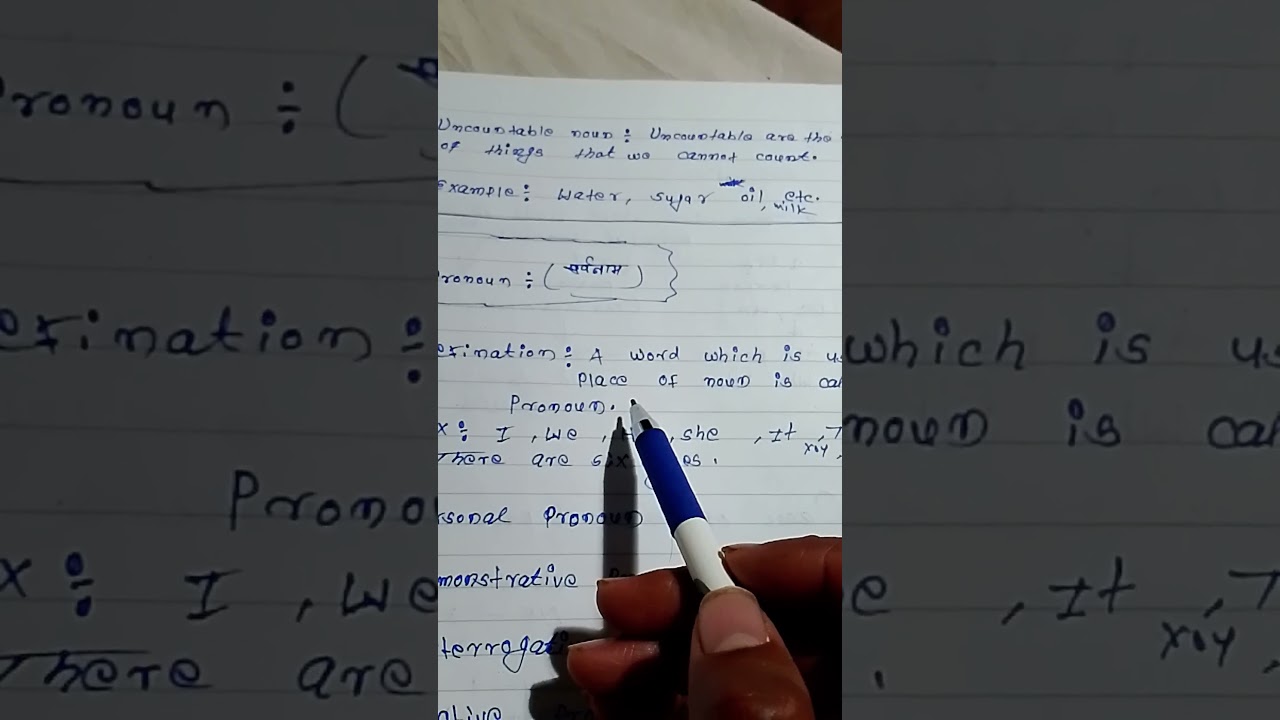 Uncountable noun : Uncountable are the
of things that we cannot count.
Example : Water, sugar oil, milk etc.
ronoun : (सर्वनाम)
efination : A word which is us
Place of noun is cal
Pronoun.
x : I , we , she , It ,
There are
rsonal Pronoun
monstrative
terrogati